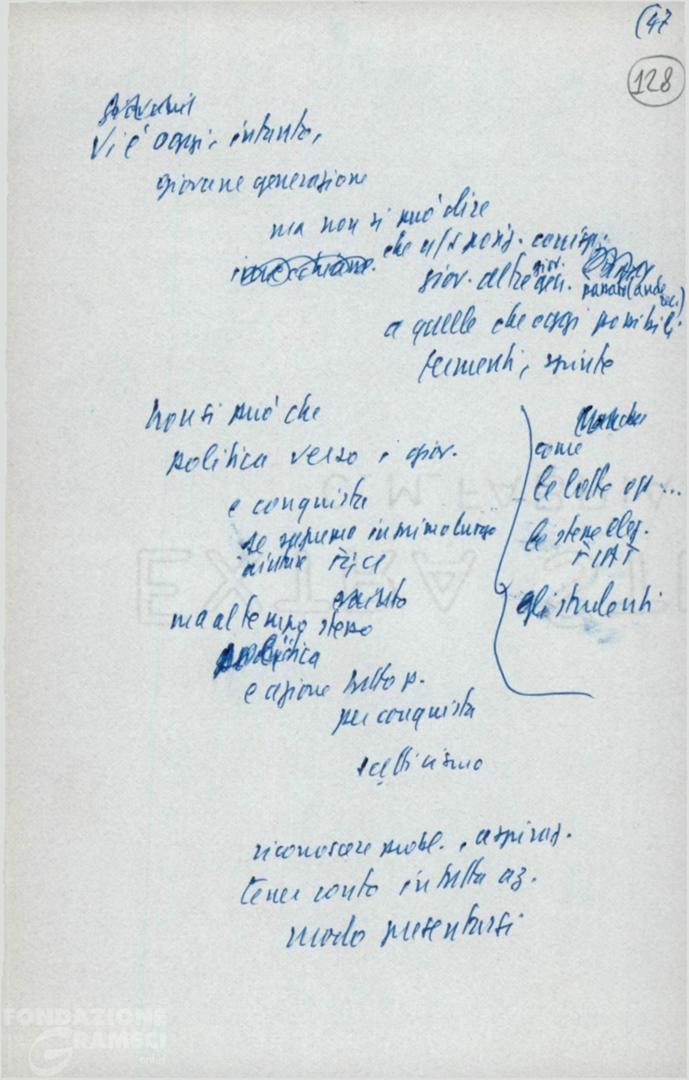 (47
128
giovani
Vi è oggi, intanto,
giovane generazione
ma non si può dire
che
giov. altre gen.
a quelle che oggi possibili
fermenti, spinte
non si può che
politica verso i giov.
e conquista
se sapremo in primo luogo
aiutare FGCI
ma al tempo stesso
politica
e azione tutto p.
per conquista
scetticismo
come
le lotte op...
le stesse elez.
FIAT
gli studenti
riconoscere probl. , aspiraz.
tener conto in tutta az.
modo presentarsi
EXTRA
FONDAZIONE
GRAMSCI